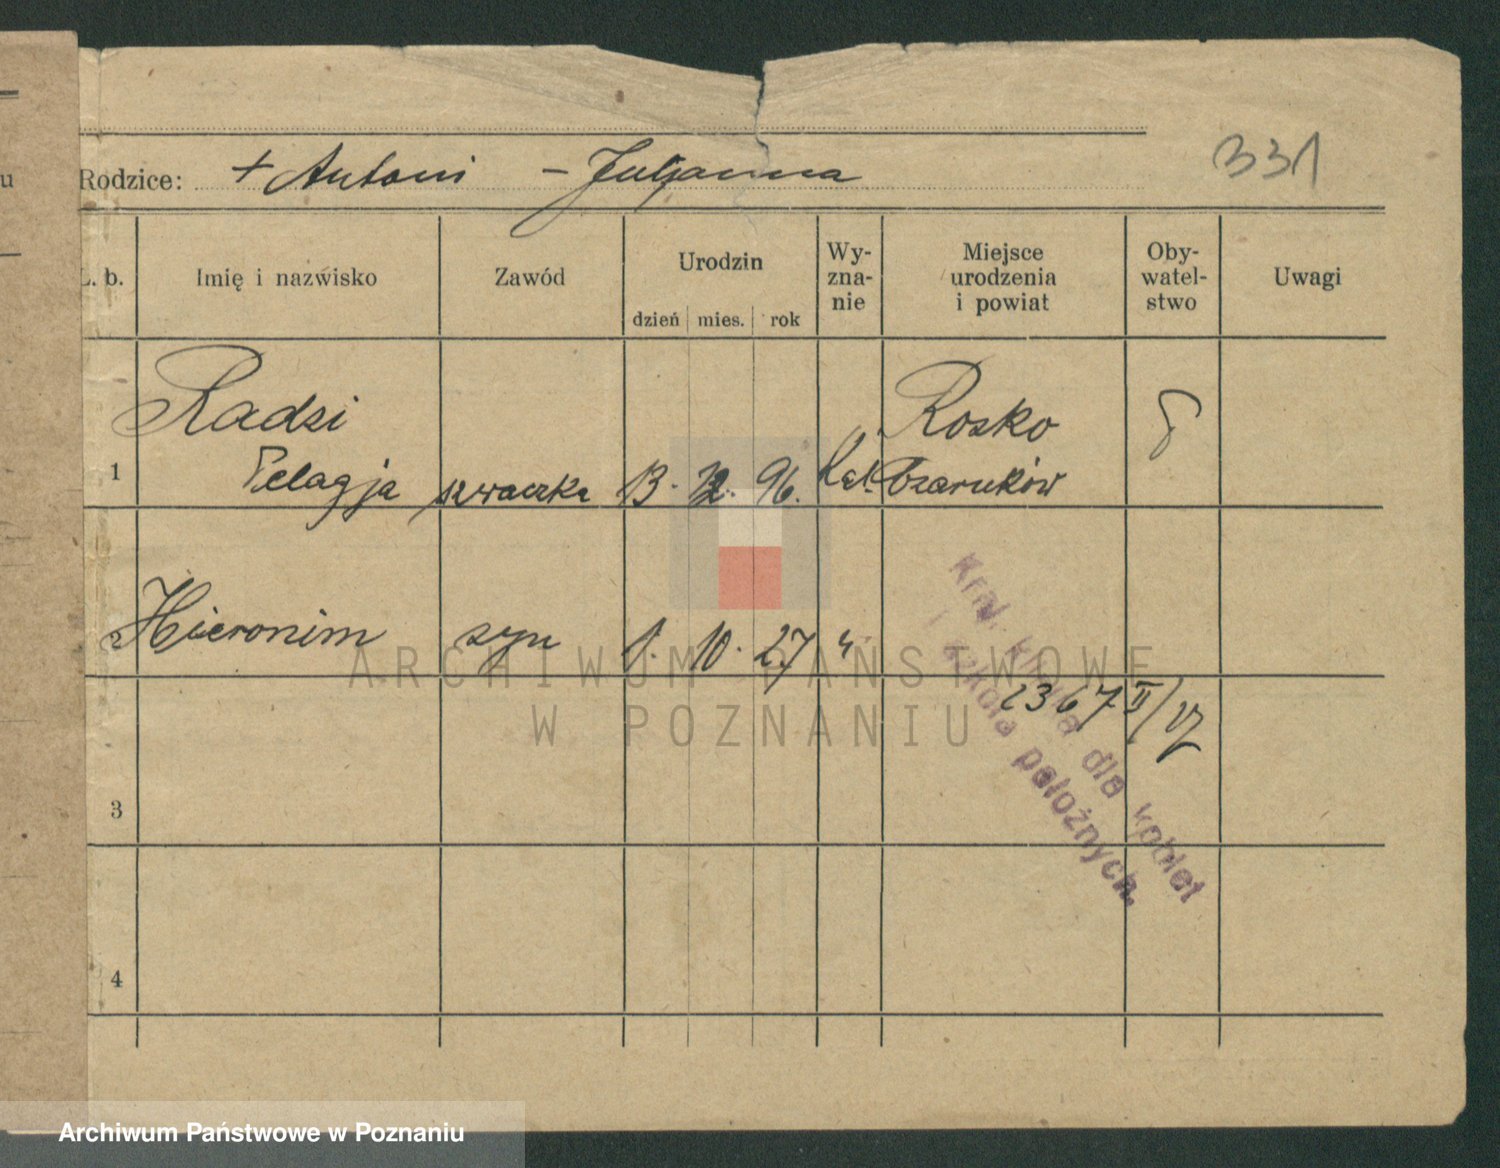 331
Rodzice: + Antoni – Juljanna
L. b. Imię i nazwisko Zawód Urodzin Wy-zna-nie Miejsce urodzenia i powiat Oby-watel-stwo Uwagi
dzień mies. rok
Radzi Rosko
1 Pelagja szwaczka 13. 12. 96. Kat. Czarnków
Hieronim syn 1. 10. 27 "
2367 II/27
Kraj. klinika dla kobiet
i szkoła położnych.
3
4
ARCHIWUM PAŃSTWOWE
W POZNANIU
Archiwum Państwowe w Poznaniu